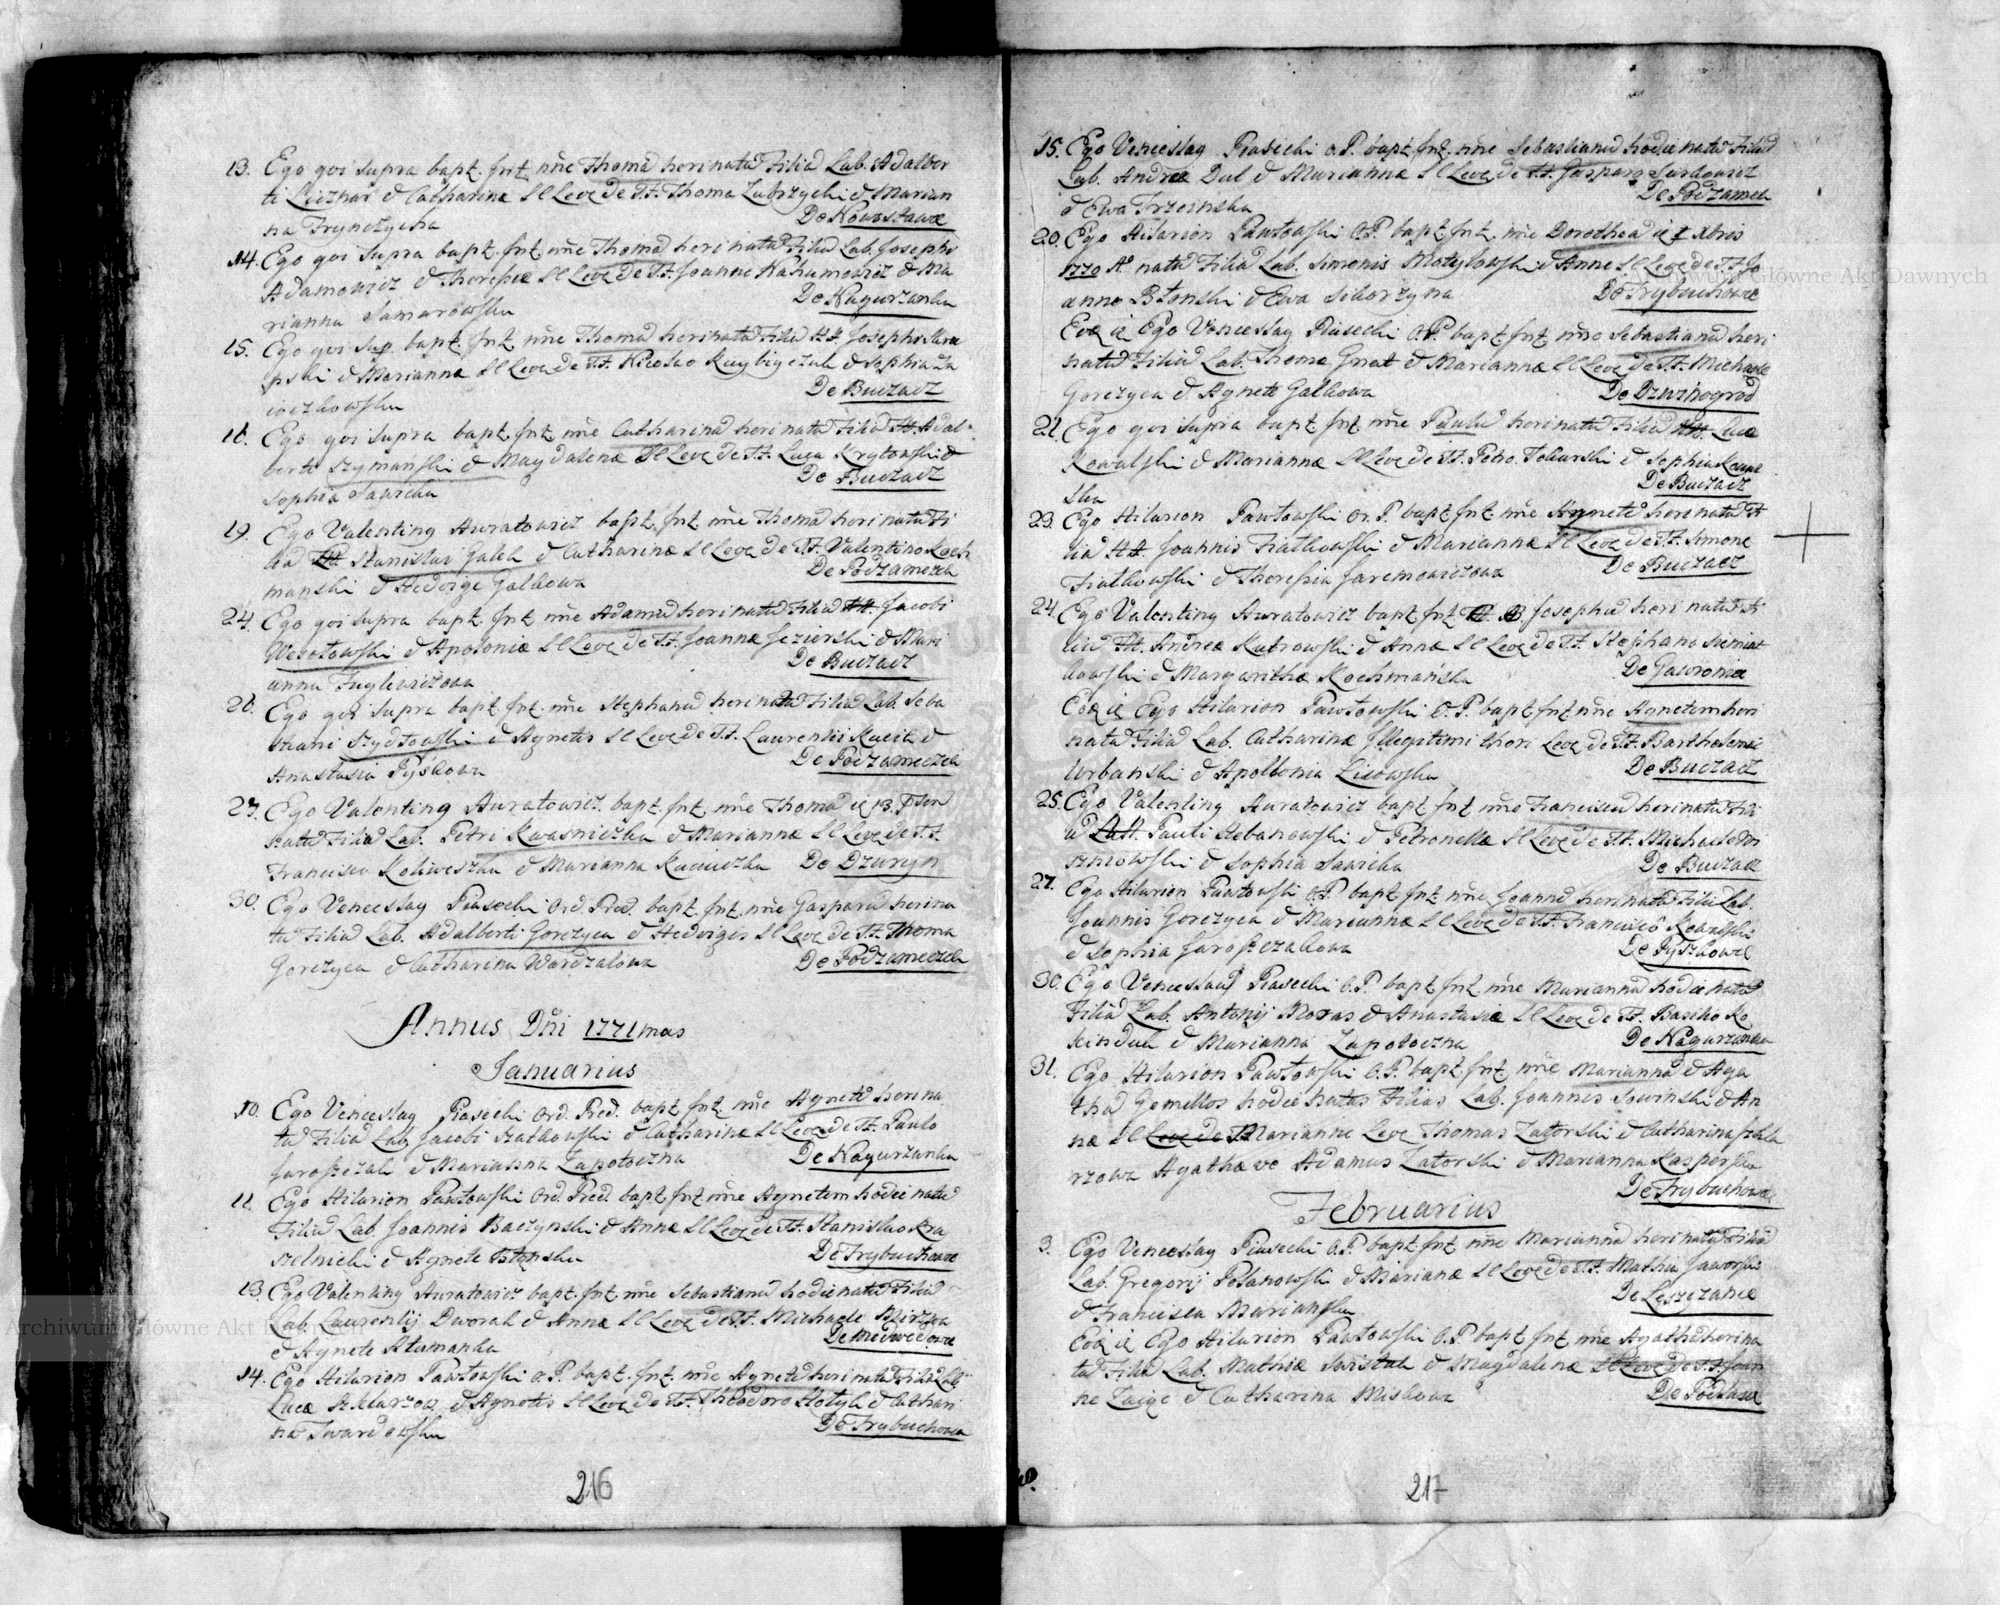 13. Ego qvi supra bapt. fnt. nne Thomā heri natū Filiū Lab. Adalber
ti Licznar & Catharinæ SC Leve de SS. Thoma Zubrzycki & Marian
na Trynczycha De Nowostawce
14. Ego qvi supra bapt. fnt. nne Thomā heri natū Filiū Lab. Josephi
Adamowicz & Theresiæ SC Leve de SS. Joanne & Ma
rianna Samarowska De Nagurzanka
15. Ego qvi sup. bapt. fnt nne Thomā heri natū Filiū Josephi
pski & Marianna SC Leve de SS. Nicolao & Sophia Za
iaczkowska De Buczacz
16. Ego qvi supra bapt. fnt. nne Catharinā heri natā Filiā Adal-
berti Szymański & Magdalenæ SC Leve de SS. Luca Krytowski &
Sophia Sawicka De Buczacz
19. Ego Valentinq Auratowicz bapt. fnt. nne Thomā heri natū Fi
liū Stanislai Galek & Catharinæ SC Leve de SS. Valentino Koch
manski & Hedvige Galkowa De Podzameczek
24. Ego qvi supra bapt. fnt. nne Adamū heri natū Filiū Jacobi
Wesołowski & Apoloniæ SC Leve de SS. Joanne Jezierski & Mari
anna Fuglewiczowa De Buczacz
26. Ego qvi supra bapt. fnt. nne Stephanū heri natū Filiū Lab. Seba
stiani Szydłowski & Agnetis SC Leve de SS. Laurentii Kucik &
Anastasia Pyskowa De Podzameczek
27. Ego Valentinq Auratowicz. bapt. fnt. nne Thomā ie 13.
natū Filiū Lab. Petri Kwasniczka & Mariannæ SC Leve de SS.
Francisco Koliweszka & Marianna Kuciczka De Dzuryn
30. Ego Venceslaq Piasecki Ord. Præd. bapt. fnt. nne Gasparū heri na
tū Filiū Lab. Adalberti Gorczyca & Hedvigis SC Leve de SS. Thoma
Gorczyca & Catharina Wardzalowa De Podzameczek
Annus Dñi 1771mus
Januarius
10. Ego Venceslaq Piasecki Ord. Præd. bapt. fnt. nne Agnetē heri na
tā Filiā Lab. Jacobi & Catharinæ SC Leve de SS. Paulo
Jaroszczak & Marianna Zapotoczna De Nagurzanka
11. Ego Hilarion Pawłowski Ord. Præd. bapt. fnt. nne Agnetem hodie natā
Filiā Lab. Joannis Baczynski & Annæ SC Leve de SS. Stanislao Kra
szelnicki & Agnete De Trybuchowce
13. Ego Valentinq Auratowicz bapt. fnt. nne Sebastianū hodie natū Filiū
Lab. Laurentij Dworak & Annæ SC Leve de SS. Michaele
& Agnete De Medwedowce
14. Ego Hilarion Pawłowski O.P. bapt. fnt. nne Agnetē heri natā Filiā Lab.
Lucæ & Agnetis SC Leve de SS. Theodoro & Cathari
na Twardowska De Trybuchowce
216
15. Ego Venceslaq Piasecki O.P. bapt. fnt. nne Sebastianū hodie natū Filiū
Lab. Andreæ Dul & Mariannæ SC Leve de SS. Gasparo
& Ewa Trzcinska De Podzamec
20. Ego Hilarion Pawłowski O.P. bapt. fnt. nne Dorotheā ie Xbris
1770 Aº natā Filiā Lab. Simonis Motylowski & Annæ SC Leve de SS. Jo
anne Błonski & Ewa Sikorzyna De Trybuchowce
Eoq ie Ego Venceslaq Piasecki O.P. bapt. fnt. nne Sebastianū heri
natū Filiū Lab. Thomæ Gnat & Mariannæ SC Leve de SS. Michaele
Gorczyca & Agnete Galkowa De Dzwinogrod
21. Ego qvi supra bapt. fnt nne Paulū heri natū Filiū Lucæ
Kowalski & Mariannæ SC Leve de SS. Petro. Tokarski & Sophia
ska De Buczacz
23. Ego Hilarion Pawłowski Or. P. bapt. fnt. nne Agnetē heri natā Fi
liā Joannis Fiałkowski & Mariannæ SC Leve de SS. Simone
Fiałkowski & Theresia Jaremowiczowa De Buczacz
24. Ego Valentinq Auratowicz bapt. fnt Josephū heri natū Fi
liū Andreæ Kutrowski & Annæ SC Leve de SS. Stephano
kowski & Margaritha Kochmańska De Gawronie
Eoq ie Ego Hilarion Pawłowski O.P. bapt. fnt nne Agnetem heri
natā Filiā Lab. Catharinæ Illegitimi thori Leve de SS. Bartholomei
Urbanski & Apollonia Lisowska De Buczacz
25. Ego Valentinq Auratowicz bapt. fnt. nne Franciscū heri natū Fili
ū Pauli Hebanowski & Petronellæ SC Leve de SS. Michaele Wi
szniowski & Sophia Sawicka De Buczacz
27. Ego Hilarion Pawłowski O.P. bapt. fnt. nne Joannē heri natū Filiū Lab.
Joannis Gorczyca & Mariannæ SC Leve de SS. Francisco Kowalski
& Sophia Jaroszczakowa De Pyszkowce
30. Ego Venceslaus Piasecki O.P. bapt. fnt nne Mariannā hodie natā
Filiā Lab. Antonij Moras & Anastasiæ SC Leve de SS. Basilio Ko
& Marianna Zapotoczna De Nagurzanka
31. Ego Hilarion Pawłowski O.P. bapt. fnt nne Mariannā & Aga
thā Gemellos hodie natas Filias Lab. Joannis Sowinski & An
næ SC Leve de SS Mariannæ Leve Thomas Zatorski & Catharina
rzowa Agathæ vo Adamus Zatorski & Marianna Kasperska
De Trybuchowce
Februarius
3. Ego Venceslaq Piasecki O.P. bapt fnt nne Mariannā heri natā Filiā
Lab. Gregorij Polanowski & Marianæ SC Leve de SS. Mathia Jaworski
& Francisca Marianska De Leszczance
Eoq ie Ego Hilarion Pawłowski O.P. bapt. fnt. nne Agathā heri na
tā Filiā Lab. Mathiæ Swistak & Magdalenæ SC Leve de SS. Joan
ne Zaiąc & Catharina Miskowa De Podlesie
217
Archiwum Główne Akt Dawnych
Archiwum Główne Akt Dawnych